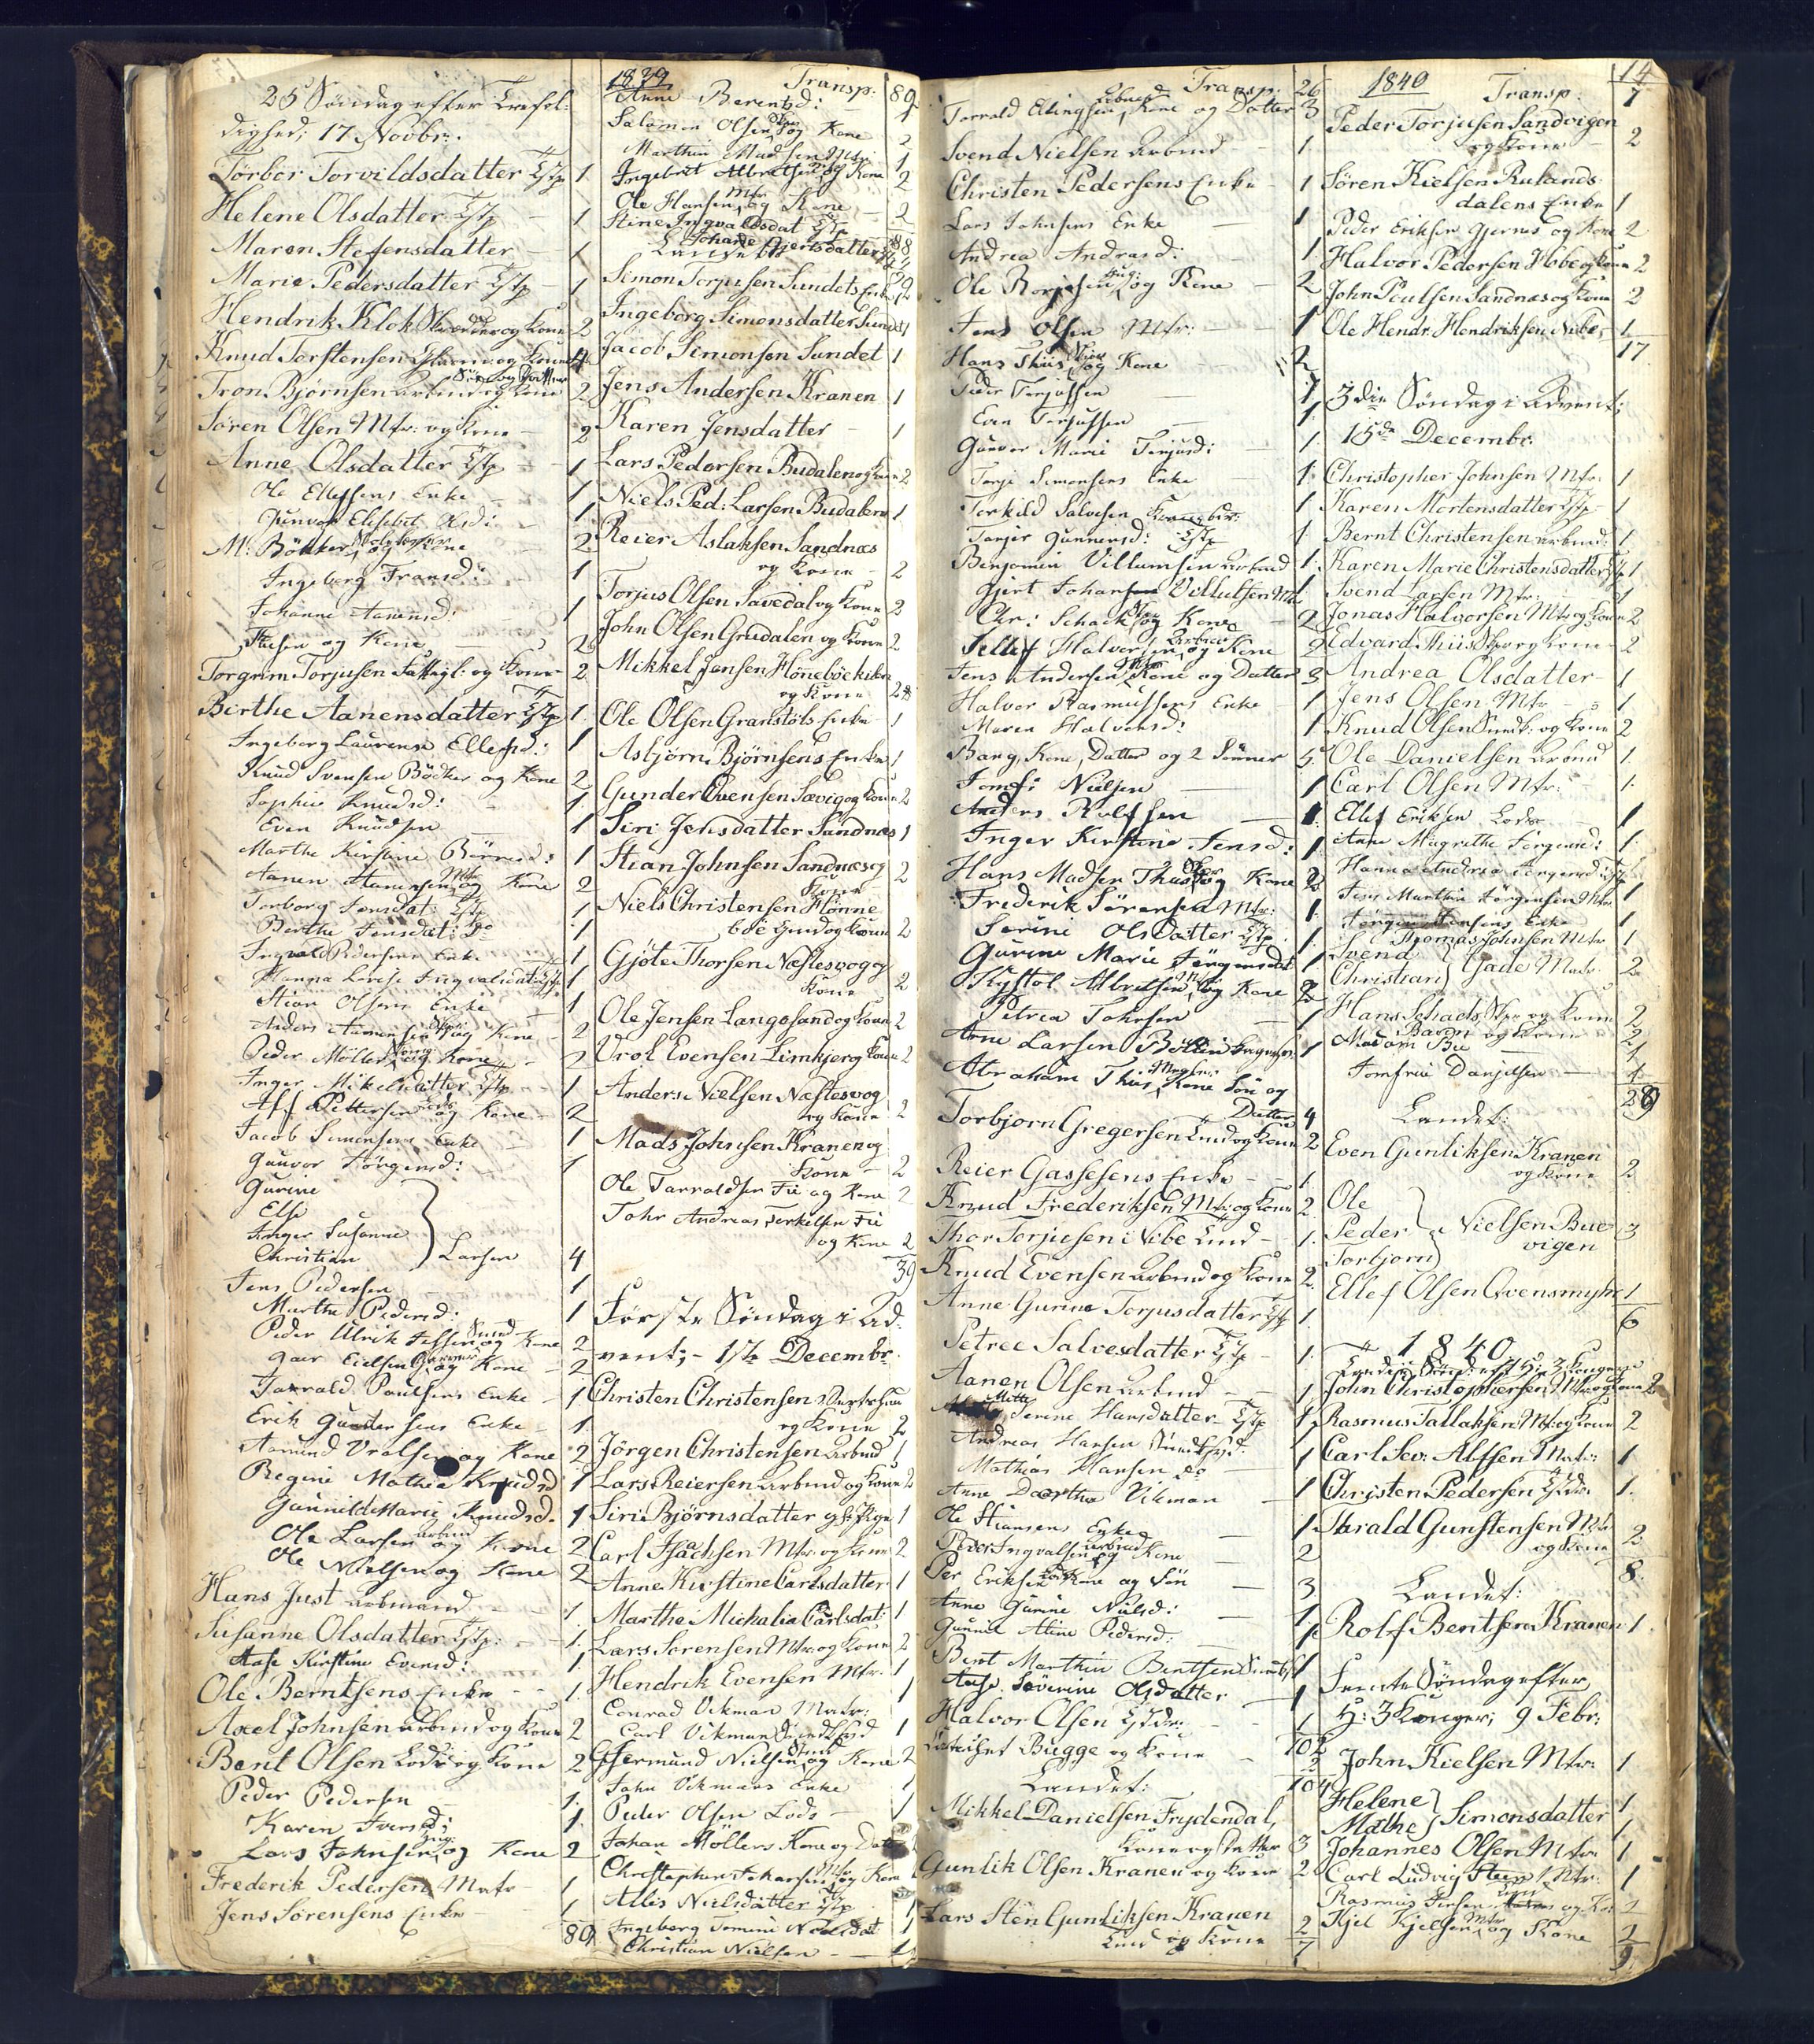 1839
25 Søndag efter Trefol-
dighed; 17 Novbr.
Törbor Torvildsdatter Tjtp 1
Helene Olsdatter Tjtp 1
Maren Stefensdatter 1
Marie Pedersdatter Tjtp 1
Hendrik Klok og Kone 2
Knud Terstensen og Kone 4
Søn og Datter
Tron Björnsen Arbmd og Kone 2
Søren Olsen Mtr: og Kone 2
Anne Olsdatter Tjtp 1
Ole Ellefsens Enke 1
Gunvor Elisebet Olsd: 1
M: Bökker og Kone 2
Ingeborg Fransd: 1
Johanne Aanensd: 1
og Kone 2
Torgrim Torjusen Fattigl: og Kone 2
Birthe Aanensdatter Tjtp 1
Ingeborg Laurense Ellefsd: 1
Knud Svensen Bödker og Kone 2
Sophie Knudsd: 1
Even Knudsen 1
Marthe Kirstine Börresd: 1
Aanen Aanensen Mtr og Kone 2
Torborg Jensdat: Tjtp 1
Berthe Jensdat: Do 1
Ingvald Pedersens Enke 1
Hanna Lovise Ingvaldsdat Tjtp 1
Stian Olsens Enke 1
Anders Aanensen og Kone 2
Peder Möller og Kone 2
Inger Mikelsdatter Tjtp 1
Alf Pettersen Lods og Kone 2
Jacob Simonsens Enke 1
Gunvor Jörgensd: 1
Gurine
Else
Inger Susanne
Christian } Larsen 4
Jens Pedersen 1
Marthe Pedersd: 1
Peder Ulrik Jessen og Kone 2
Garver og Kone 2
Tarrald Paulsens Enke 1
Erik Gundersens Enke 1
Aamund Vralsen og Kone 2
Regine Mathea Knudsd 1
Gunnild Marie Knudsd. 1
Ole Larsen arbmd og Kone 2
Ole Nielsen og Kone 2
Hans Just arbmand 1
Susanne Olsdatter Tjtp: 1
Aase Kirstine Evensd: 1
Ole Berntsens Enke 1
Axel Johnsen Arbmd og Kone 2
Bent Olsen Lods og Kone 2
Peder Pedersen 1
Karen Iversd: 1
Lars Johnsen og Kone 2
Frederik Pedersen Matr 1
Jens Sørensens Enke 1
89
Transp: 89
Anne Berentsd: 1
Salomon Olsen og Kone 2
Marthin Madsen Mtr: 1
Ingebret Albretsen og Kone 2
Ole Hansen Mtr og Kone 2
Stine Ingvaldsdat Tjtp
Johanne Gjertsdatter
Landet:
Simon Torjusen Sundets Enke
Ingeborg Simonsdatter Sundet 1
Jacob Simonsen Sundet 1
Jens Andersen Kranen 1
Karen Jensdatter 1
Lars Pedersen Budalen og Kone 2
Niels Ped: Larsen Budalen 1
Reier Aslaksen Sandnæs
og Kone 2
Torjus Olsen Savedal og Kone 2
John Olsen Grudalen og Kone 2
Mikkel Jensen Höneböekilen
og Kone 2
Ole Olsen Granstöls Enke 1
Asbjörn Björnsens Enke 1
Gunder Evensen Sævig og Kone 2
Siri Jensdatter Sandnæs 1
Stian Johnsen Sandnæs og
Kone 2
Niels Christensen Hönne
böe Gmd og Kone 2
Gjöte Thorsen Næstesvog og
Kone 2
Ole Jensen Langosand og Kone 2
Vrol Evensen Limkjer og Kone 2
Anders Nielsen Næstesvog
og Kone 2
Mads Johnsen Kranen og
Kone 2
Ole Tarraldsen Fie og Kone 2
Johr Andreas Terkelsen Fie
og Kone 2
39
Første Søndag i Ad-
vent; 1ste Decembr.
Christen Christensen
og Kone 2
Jörgen Christensen Arbmd 1
Lars Reiersen Arbmd og Kone 2
Siri Björnsdatter 1
Carl Isachsen Mtr. og Kone 2
Anne Kirstine Carlsdatter 1
Marthe Michalia Carlsdat: 1
Lars Sørensen Mtr. og Kone 2
Hendrik Evensen Mtr: 1
Conrad Vikman Matr: 1
Carl Vikman 1
Giermund Nielsen og Kone 2
John Vikmans Enke 1
Peder Olsen Lods 1
Johan Möllers Kone og Datter
Christopher Johansen Mtr og Kone
Allis Nielsdatter Tjtp 1
Ingeborg Tomine Nielsdat 1
Christian Nielsen 1
Transp: 26
Tarrald Ellingsen Arbmd Kone og Datter 3
Svend Nielsen Arbmd 1
Christen Pedersens Enke 1
Lars Johnsens Enke 1
Andrea Andreasd: 1
Ole Rorjesen og Kone 2
Jens Olsen Mtr: 1
Hans Thiis og Kone 2
Peder Terjussen 1
Even Terjussen 1
Gunvor Marie Terjusd: 1
Terje Simonsens Enke 1
Torkild Salvesen 1
Tarjer Gunnersd: Tjtp 1
Benjamin Villumsen Arbmd 1
Gjert Johan Villulsen Mtr 1
Chr: Schack og Kone 2
Tellef Halvorsen Arbmd og Kone 2
Jens Andersen Kone og Datter 3
Halvor Rasmussens Enke 1
Maren Halvorsd: 1
Bang, Kone, Datter og 2 Sönner 5
Jomf: Nielsen 1
Anders Rolfsen 1
Inger Kirstine Jensd: 1
Hans Madsen Thiis og Kone 2
Frederik Sörensen Mtr: 1
Serine Olsdatter Tjtp 1
Gurine Marie Jörgensdat 1
Kystol Albretsen og Kone 2
Petrea Johnsen 1
Arne Larsen 1
Abraham Thiis Kone Sön og
Datter 4
Torbjorn Gregersen Lmd og Kone 2
Reier Gassesens Enke 1
Knud Frederiksen Mtr: og Kone 2
Thor Torjusen i Vibe Lmd 1
Knud Evensen Arbmd og Kone 2
Anne Gurine Torjusdatter Tjtp 1
Petree Salvesdatter Tjtp 1
Aanen Olsen arbmd 1
Mette Serine Hansdatter Tjtp 1
Andreas Hansen 1
Mathias Hansen do 1
Anne Dorthea Vikman 1
Ole Stiansens Enke 1
Peder Ingvalsen arbmd og Kone 2
Per Eriksen Kone og Sön 3
Anne Gurine Nielsd: 1
Gunnil Aline Pedersd: 1
Bent Marthin Bentsen 1
Aase Severine Olsdatter 1
Halvor Olsen Tjtdr: 1
102
Bugge og Kone 2
104
Landet:
Mikkel Danielsen Frydendal,
Kone og Datter 3
Gunlik Olsen Kranen og Kone 2
Lars Sten Gunliksen Kranen
Lmd og Kone 2
7
14
1840
Transp: 7
Peder Torjusen Sandvigen
og Kone 2
Sören Kielsen Rulands-
dalens Enke 1
Peder Eriksen Gjernes og Kone 2
Halvor Pedersen Hobe og Kone 2
John Poulsen Sandnæs og Kone 2
Ole Hendr. Hendriksen Nibe 1
17
3die Søndag i Advent;
15de Decembr.
Christopher Johnsen Mtr. 1
Karen Mortensdatter Tjtp 1
Bernt Christensen arbmd: 1
Karen Marie Christensdatter Tjtp 1
Svend Larsen Mtr: 1
Jonas Halvorsen Mtr og Kone 2
Edvard Thiis og Kone 2
Andrea Olsdatter 1
Jens Olsen Mtr 1
Knud Olsen Smd: og Kone 2
Ole Danielsen Arbmd 1
Carl Olsen Mtr: 1
Ellef Eriksen Lods 1
Anne Magrethe Jörgensd: 1
Hanna Andrea Jörgensd: Tjtp 1
Jens Marthin Jörgensen Mtr 1
Jörgen Jensens Enke 1
Thomas Johnsen Mtr 1
Svend
Christian } Gade Matr. 2
Hans Schack og Kone 2
Baron og Kone 2
Madam Bie 1
Jomfrue Danielsen 1
28
Landet:
Even Gunliksen Kranen
og Kone 2
Ole
Peder
Torbjorn } Nielsen Bue-
vigen 3
Ellef Olsen Qvensmyhr 1
6
1840
Anden Sönd: eft H: 3 Konger
John Christophersen Mtr og Kone 2
Rasmus Tallaksen Mtr og Kone 2
Carl Sev: Alfsen Matr: 1
Christen Pedersen Tjtdr. 1
Harald Gunstensen Mtr
og Kone 2
8
Landet:
Rolf Bentsen Kranen 1
Femte Søndag efter
H: 3 Konger; 9 Febr:
John Kielsen Mtr: 1
Helene
Mathe } Simonsdatter 1
1
Johannes Olsen Mtr 1
Carl Ludvig Steen Mtr: 1
Rasmus Jensen og Kone 2
Kjel Kjelsen Mtr og Kone 2
9